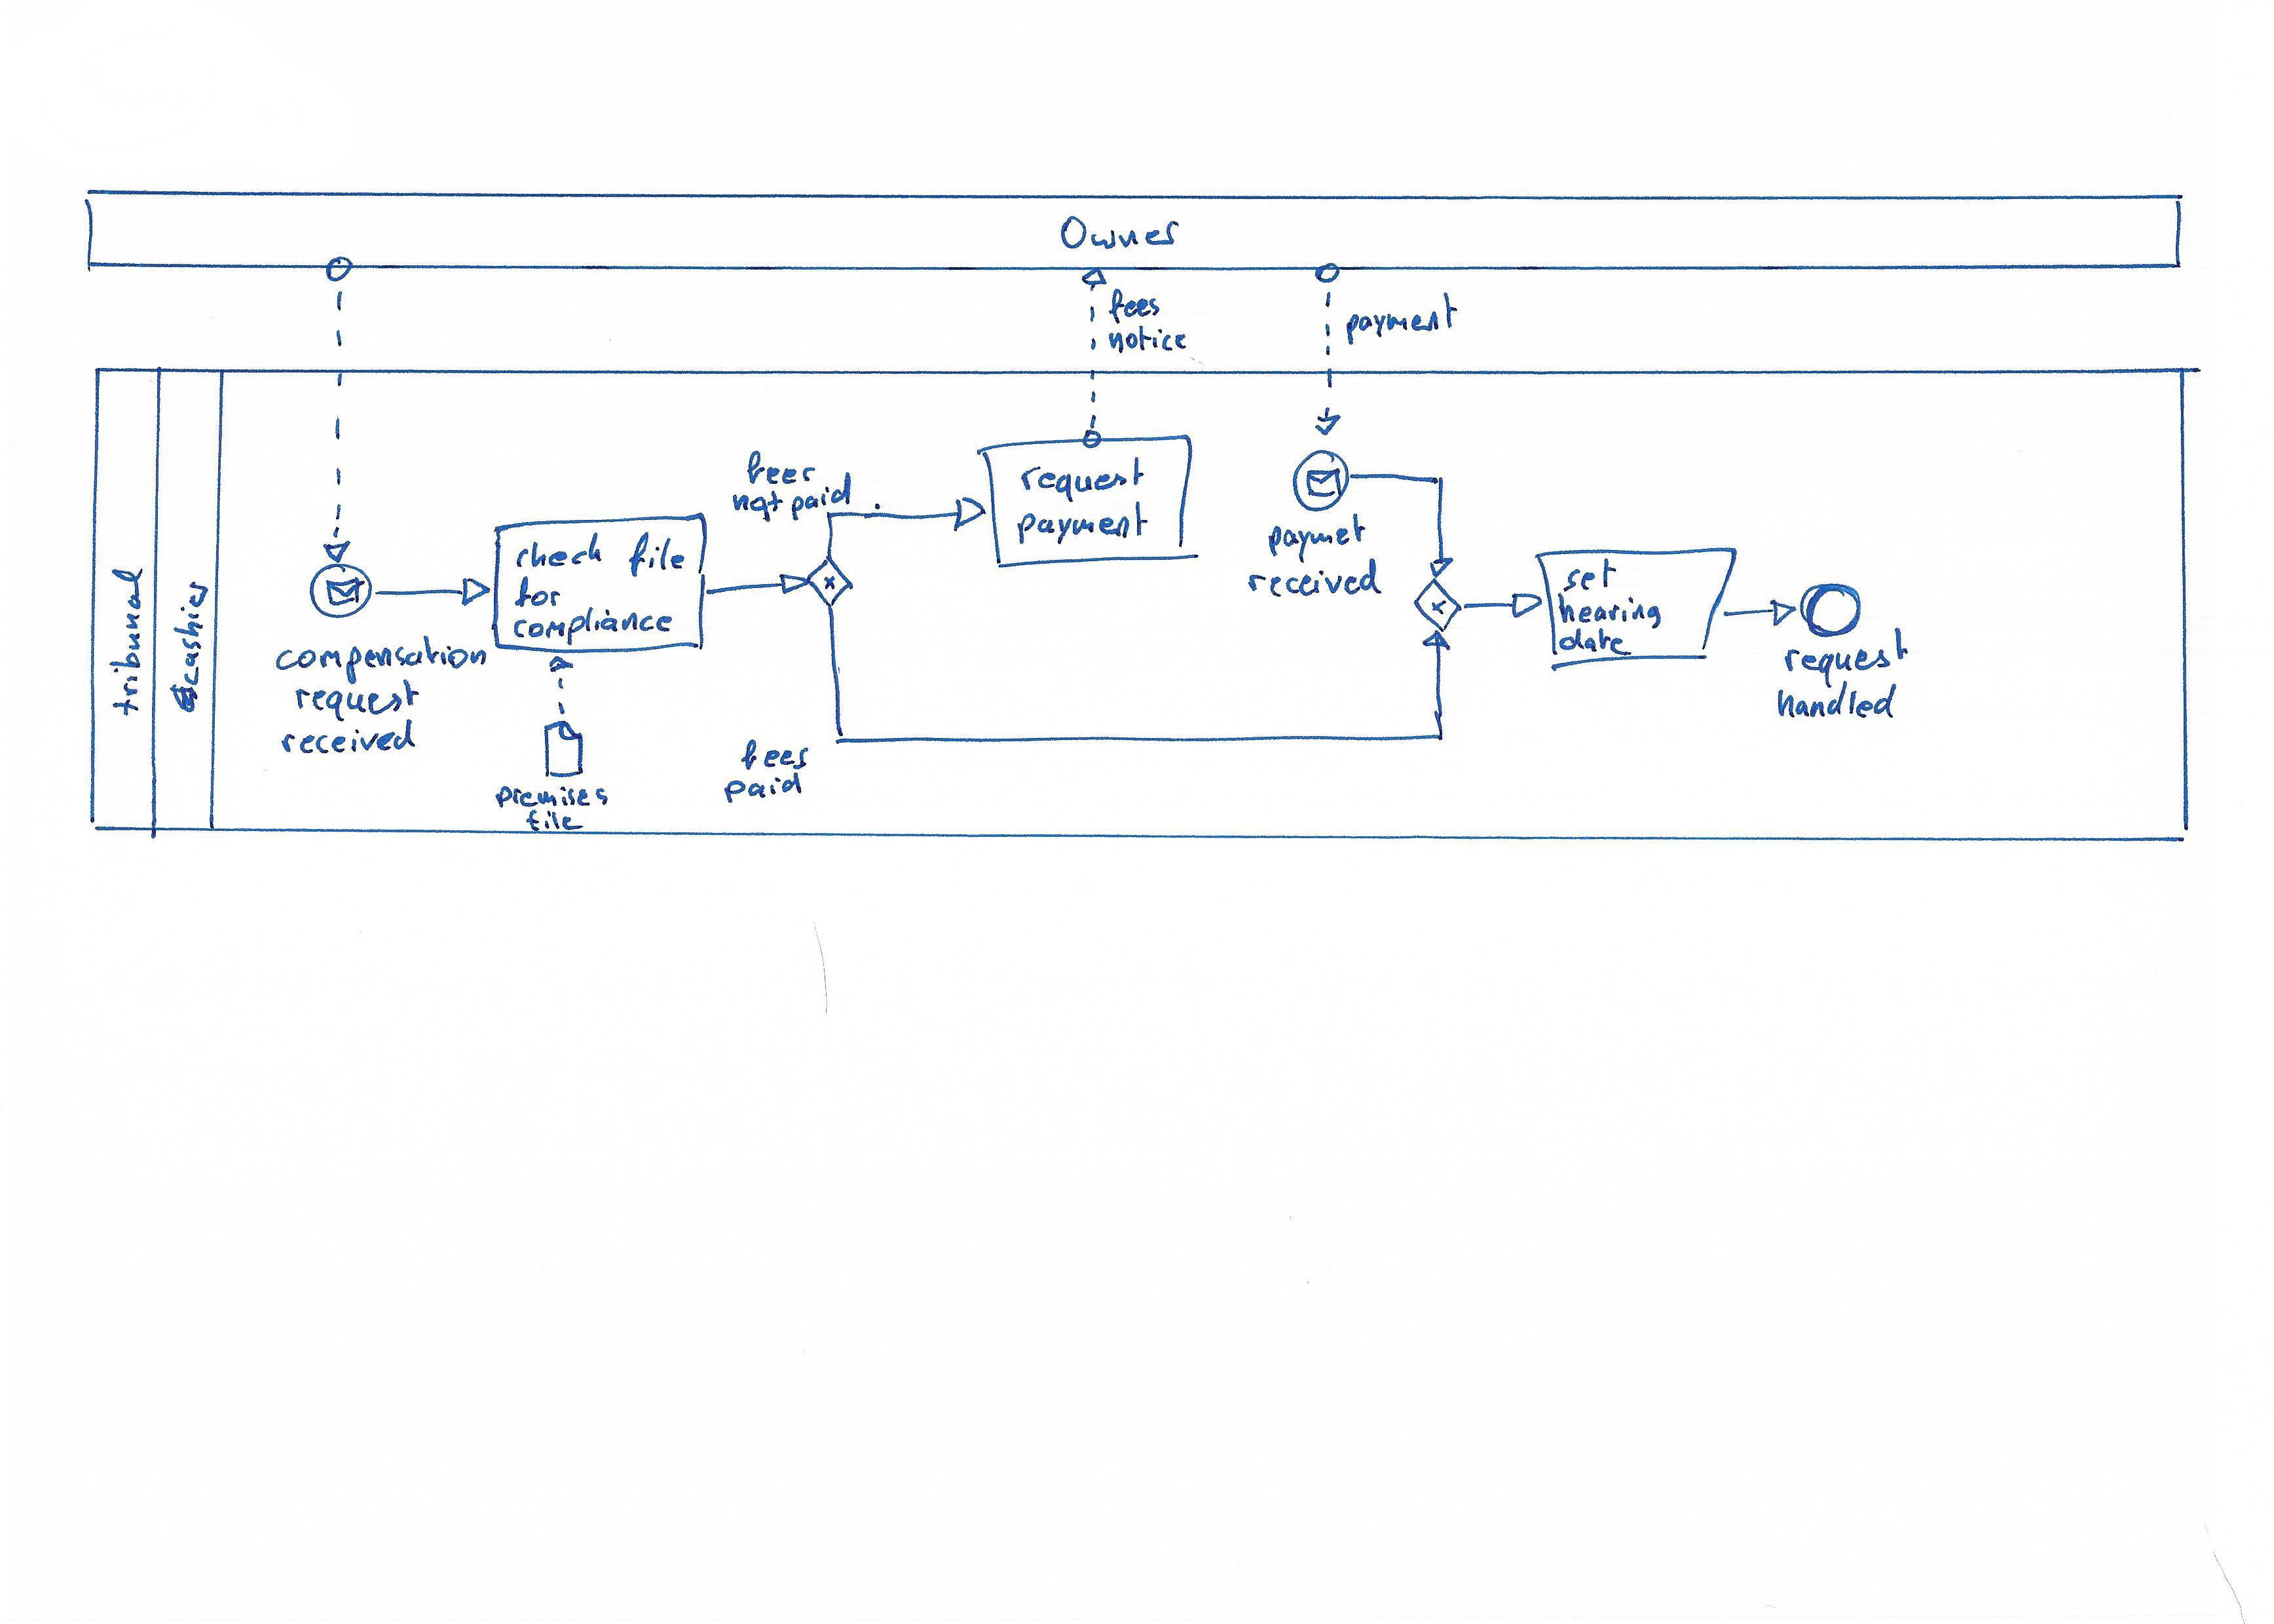 Owner
fees
notice
payment
tribunal
cashier
compensation
request
received
check file
for
compliance
premises
file
fees
not paid
fees
paid
request
payment
paymet
received
set
hearing
date
request
handled